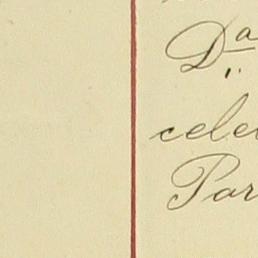 Da
cele
Par